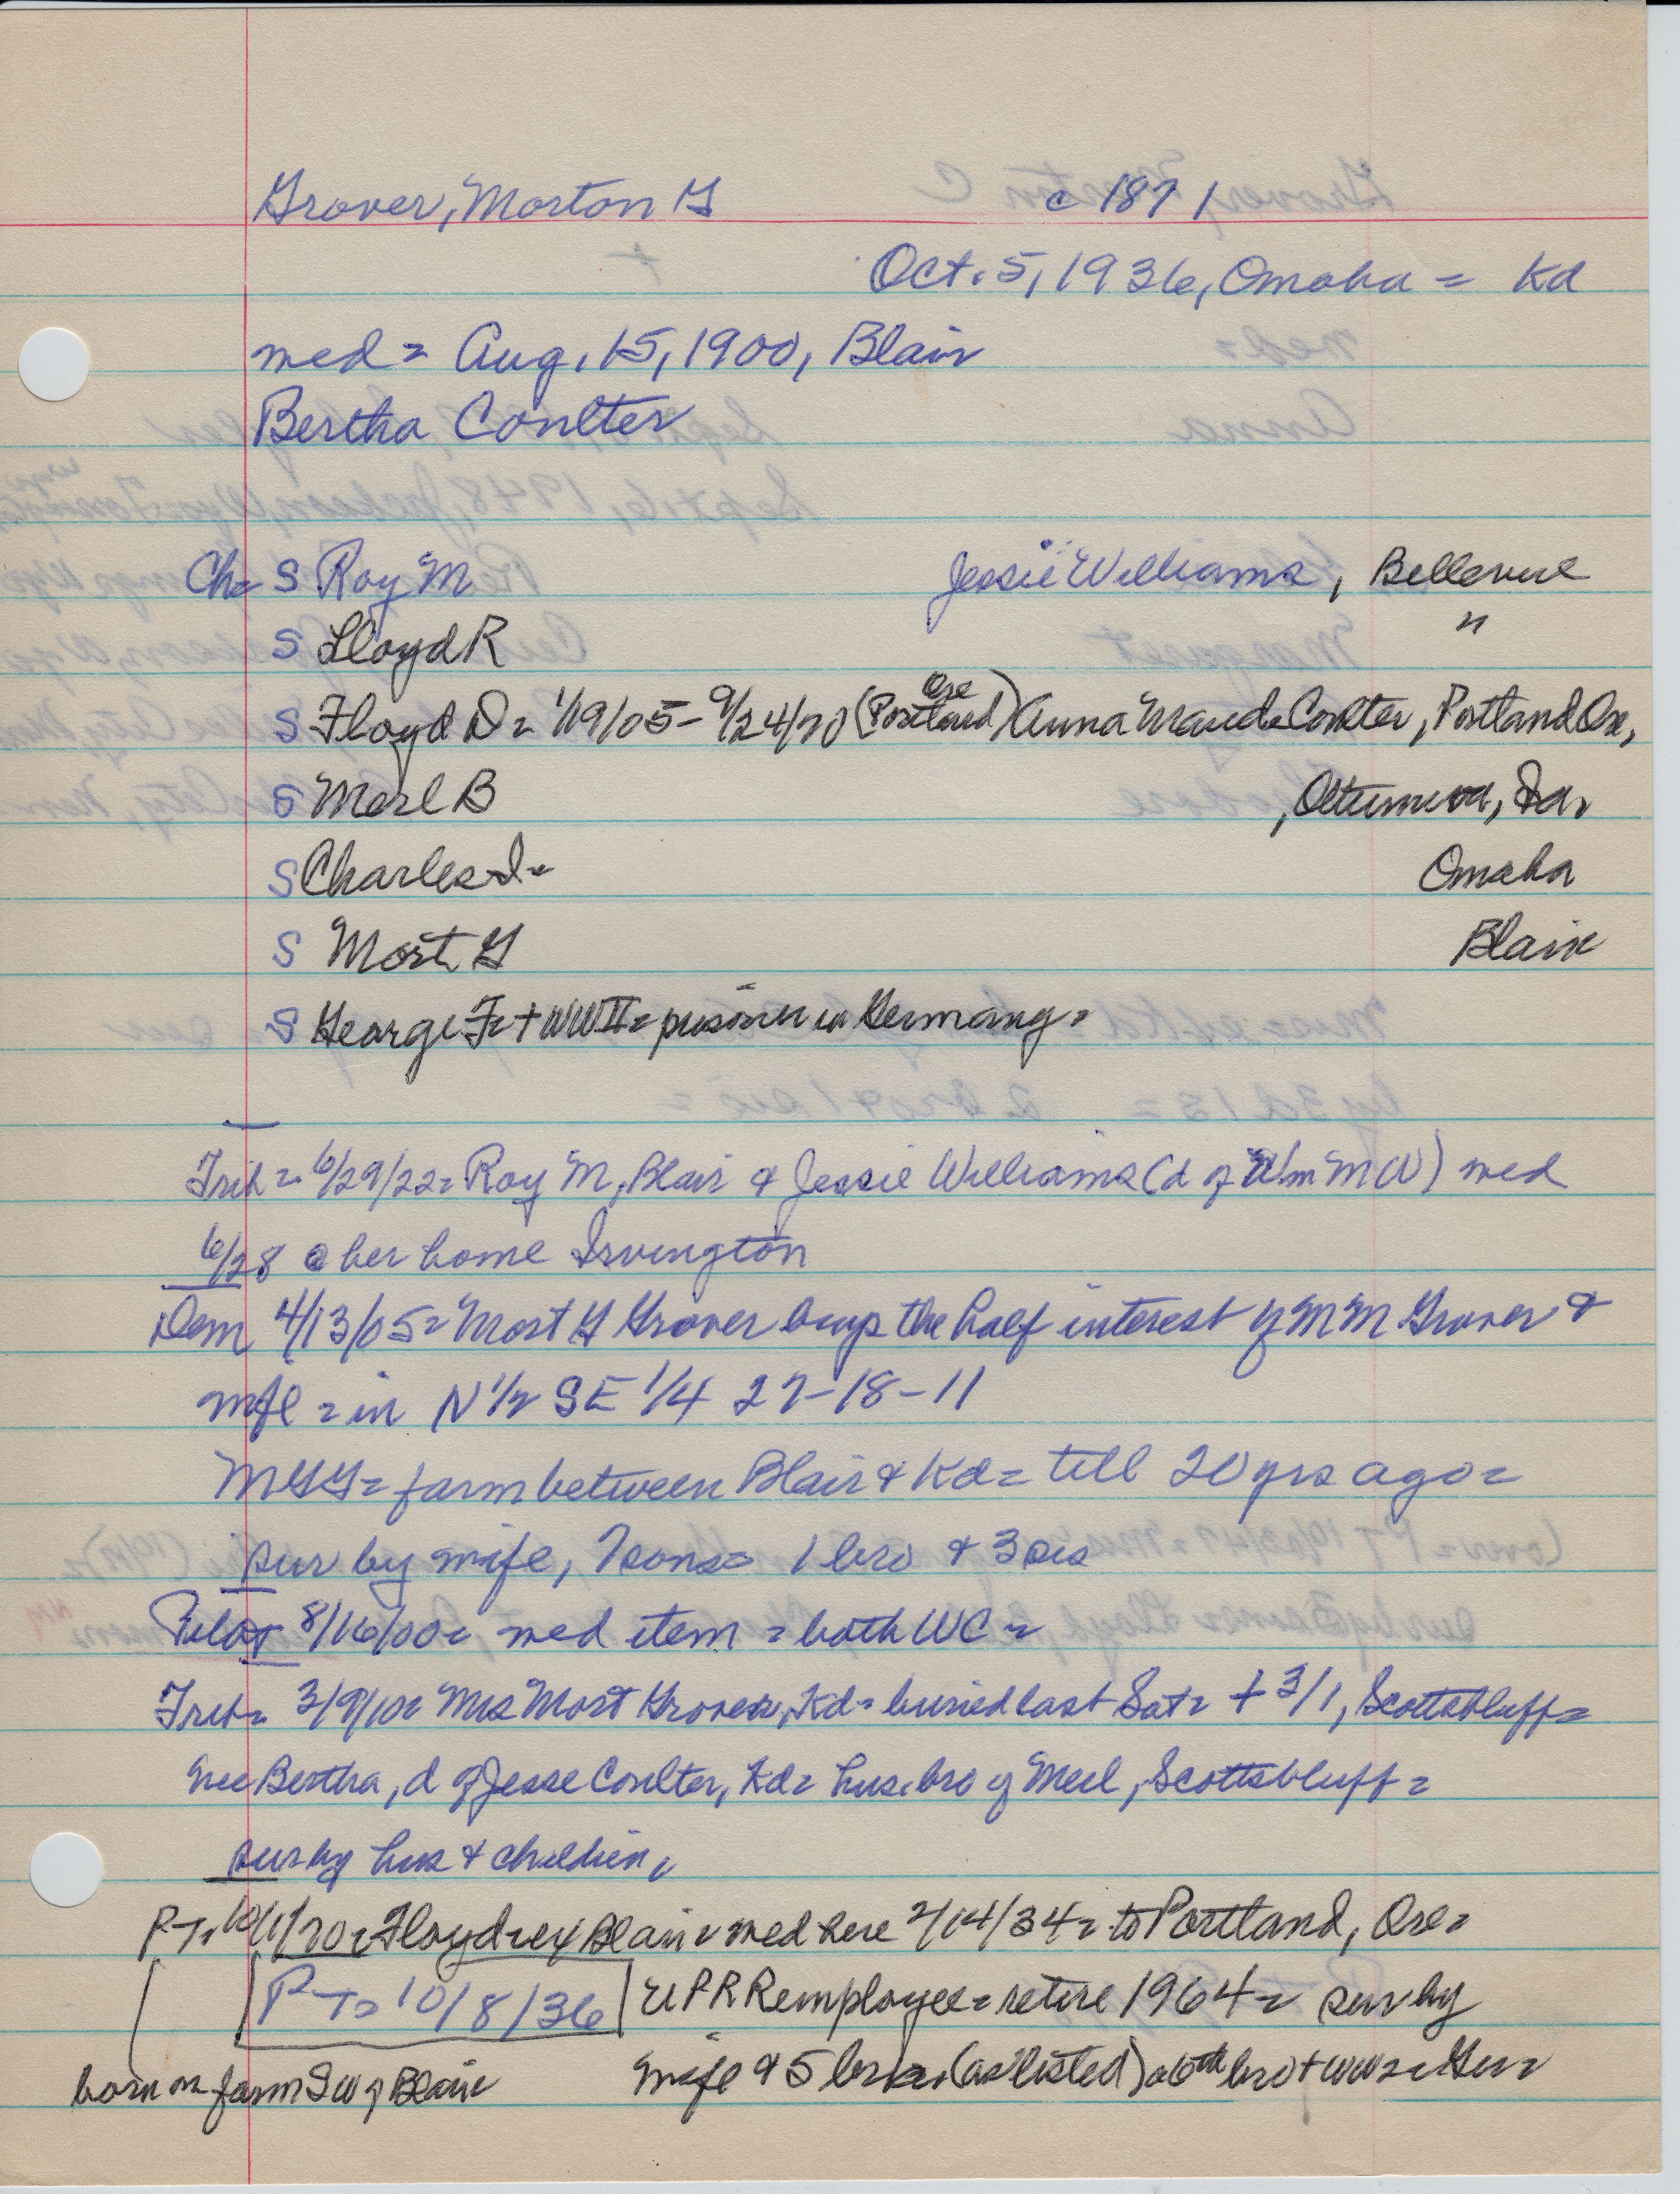 Grover, Morton G c 1871
Oct. 5, 1936, Omaha = Kd
med = Aug. 15, 1900, Blair
Bertha Coulter
Ch= S Roy M Jessie Williams, Bellevue
S Lloyd R "
S Floyd D = 1/19/05 - 9/24/70 (Portland Ore) Anna Maude Coulter, Portland Ore,
S Merl B , Ottumwa, Ia,
S Charles I = Omaha
S Mort G Blair
S George F = + WWII = prisoner in Germany =
Trib = 6/29/22 = Roy M, Blair & Jessie Williams (d of Wm M W) med
6/28 @ her home Irvington
Dem 4/13/05 = Mort G Grover buys the half interest of M M Grover &
wife = in N 1/2 SE 1/4 27-18-11
MGG = farm between Blair & Kd = till 20 yrs ago =
sur by wife, 7 sons = 1 bro & 3 sis
Pilot 8/16/00 = med item = both WC =
Trib = 3/9/10 = Mrs Mort Grover, Kd = buried last Sat = + 3/1, Scottsbluff =
nee Bertha, d of Jesse Coulter, Kd = hus. bro of Merl, Scottsbluff =
sur by hus & children,
P-T = 10/1/70 = Floyd = ex Blair = med here 2/14/34 = to Portland, Ore =
P-T = 10/8/36 UPRR employee = retire 1964 = sur by
born on farm SW of Blair wife & 5 bro. (as listed) a 6th bro + WW2 = Ger =